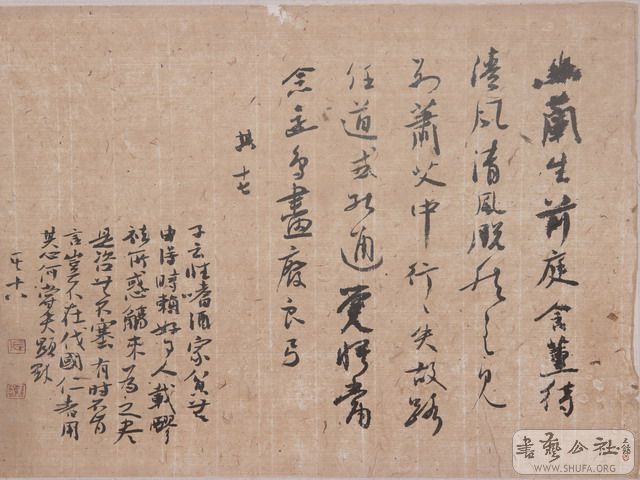 幽蘭生前庭含薰待
清風清風脫然至見
別蕭艾中行々失故路
任道或能通覺悟當
念還鳥盡廢良弓
其十七
子云性嗜酒家貧無
由得時賴好事人載醪
祛所惑觴來為之盡
是諮無不塞有時不肯
言豈不在伐國仁者用
其心何嘗失顯默
其十八
書藝公社
WWW.SHUFA.ORG